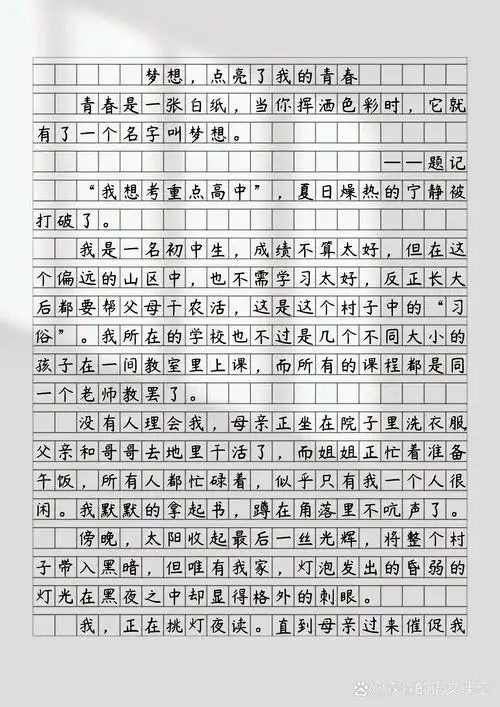 梦想，点亮了我的青春
青春是一张白纸，当你挥洒色彩时，它就
有了一个名字叫梦想。
——题记
“我想考重点高中”，夏日燥热的宁静被
打破了。
我是一名初中生，成绩不算太好，但在这
个偏远的山区中，也不需学习太好，反正长大
后都要帮父母干农活，这是这个村子中的“习
俗”。我所在的学校也不过是几个不同大小的
孩子在一间教室里上课，而所有的课程都是同
一个老师教罢了。
没有人理会我，母亲正坐在院子里洗衣服
父亲和哥哥去地里干活了，而姐姐正忙着准备
午饭，所有人都忙碌着，似乎只有我一个人很
闲。我默默的拿起书，蹲在角落里不吭声了。
傍晚，太阳收起最后一丝光辉，将整个村
子带入黑暗，但唯有我家，灯泡发出的昏弱的
灯光在黑夜之中却显得格外的刺眼。
我，正在挑灯夜读。直到母亲过来催促我
@森森的语文课堂